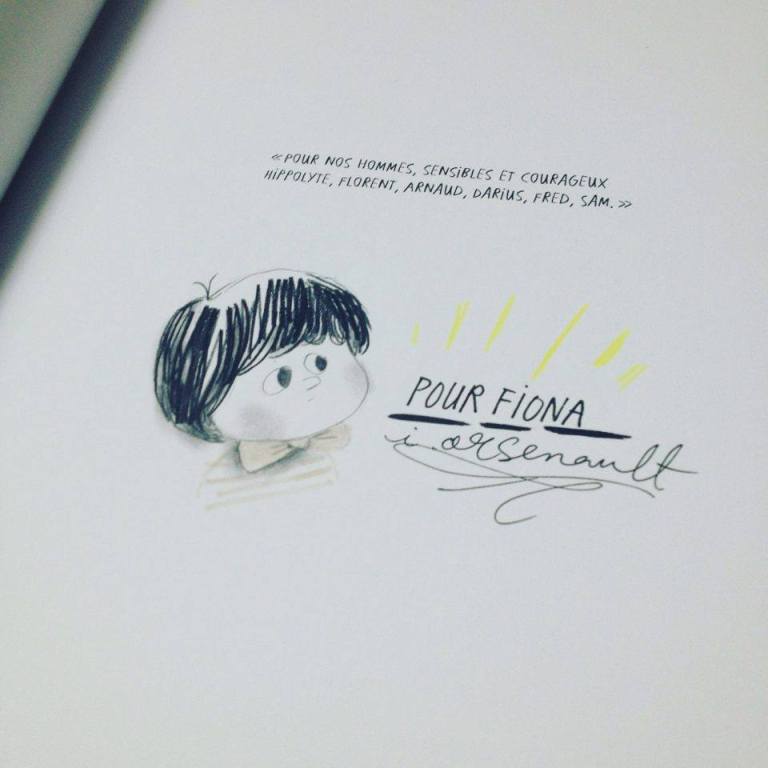 «POUR NOS HOMMES, SENSIBLES ET COURAGEUX
HIPPOLYTE, FLORENT, ARNAUD, DARIUS, FRED, SAM.»
POUR FIONA
i. arsenault